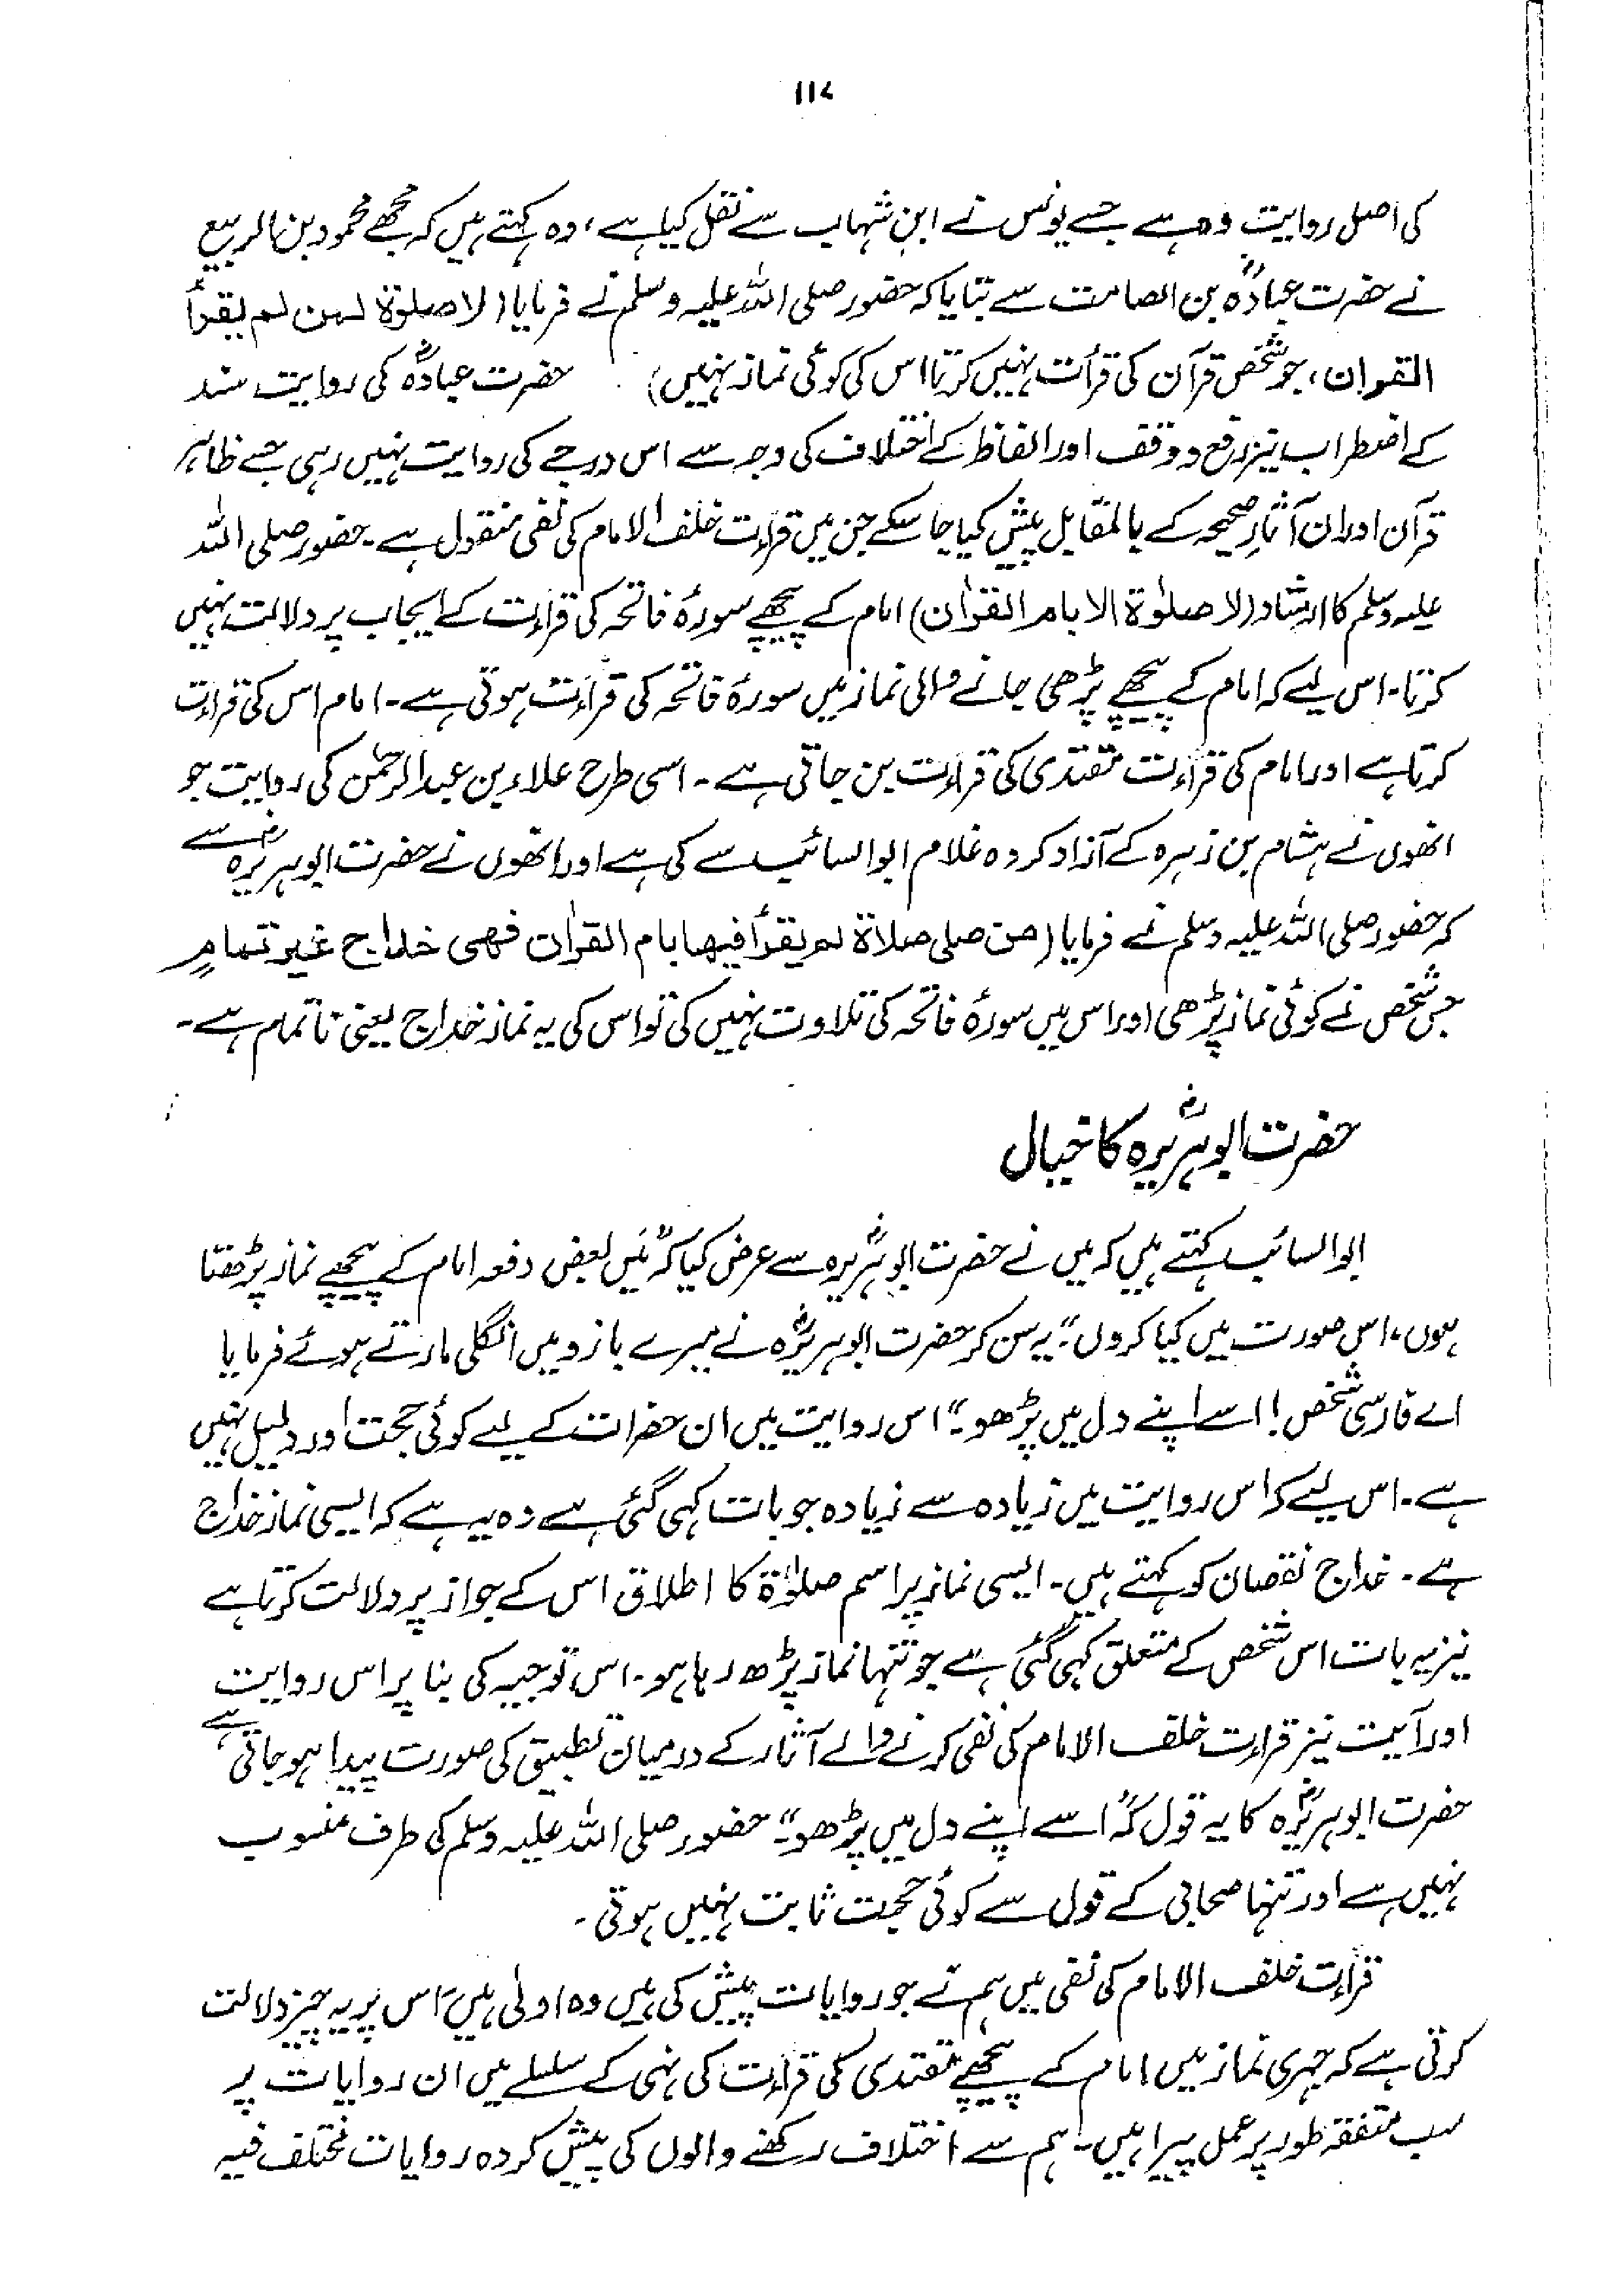 ۱۱۷
کی اصل روایت وہ ہے جسے یونس نے ابن شہاب سے نقل کیا ہے، وہ کہتے ہیں کہ مجھے محمود بن الربیع
نے حضرت عبادہؓ بن الصامت سے بتایا کہ حضور صلی اللہ علیہ وسلم نے فرمایا (لا صلوۃ لمن لم یقرأ
القرآن، جو شخص قرآن کی قرأت نہیں کرتا اس کی کوئی نماز نہیں) حضرت عبادہؓ کی روایت سند
کے اضطراب نیز رفع و وقف اور الفاظ کے اختلاف کی وجہ سے اس درجے کی روایت نہیں رہی جسے ظاہر
قرآن اور ان آثارِ صحیحہ کے بالمقابل پیش کیا جا سکے جن میں قرأت خلف الامام کی نفی منقول ہے۔ حضور صلی اللہ
علیہ وسلم کا ارشاد (لا صلوٰۃ الا بام القراٰن) امام کے پیچھے سورۂ فاتحہ کی قرأت کے ایجاب پر دلالت نہیں
کرتا۔ اس لیے کہ امام کے پیچھے پڑھی جانے والی نماز میں سورۂ فاتحہ کی قرأت ہوتی ہے۔ امام اس کی قرأت
کرتا ہے اور امام کی قرأت مقتدی کی قرأت بن جاتی ہے۔ اسی طرح علاء بن عبدالرحمٰن کی روایت جو
انھوں نے ہشام بن زہرہ کے آزاد کردہ غلام ابوالسائب سے کی ہے اور انھوں نے حضرت ابوہریرہؓ سے
کہ حضور صلی اللہ علیہ وسلم نے فرمایا (من صلی صلاۃ لم یقرأ فیھا بام القراٰن فھی خداج غیر تمامٍ
جس شخص نے کوئی نماز پڑھی اور اس میں سورۂ فاتحہ کی تلاوت نہیں کی تو اس کی یہ نماز خداج یعنی ناتمام ہے۔
حضرت ابوہریرہؓ کا خیال
ابوالسائب کہتے ہیں کہ میں نے حضرت ابوہریرہؓ سے عرض کیا کہ "میں بعض دفعہ امام کے پیچھے نماز پڑھتا
ہوں، اس صورت میں کیا کروں"؟ یہ سن کر حضرت ابوہریرہؓ نے میرے بازو میں انگلی مارتے ہوئے فرمایا
اے فارسی شخص! اسے اپنے دل میں پڑھو۔" اس روایت میں ان حضرات کے لیے کوئی حجت اور دلیل نہیں
ہے۔ اس لیے کہ اس روایت میں زیادہ سے زیادہ جو بات کہی گئی ہے وہ یہ ہے کہ ایسی نماز خداج
ہے۔ خداج نقصان کو کہتے ہیں۔ ایسی نماز پر اسم صلوٰۃ کا اطلاق اس کے جواز پر دلالت کرتا ہے
نیز یہ بات اس شخص کے متعلق کہی گئی ہے جو تنہا نماز پڑھ رہا ہو۔ اس توجیہ کی بنا پر اس روایت
اور آیت نیز قرأت خلف الامام کی نفی کرنے والے آثار کے درمیان تطبیق کی صورت پیدا ہو جاتی ہے،
حضرت ابوہریرہؓ کا یہ قول کہ "اسے اپنے دل میں پڑھو۔" حضور صلی اللہ علیہ وسلم کی طرف منسوب
نہیں ہے اور تنہا صحابی کے قول سے کوئی حجت ثابت نہیں ہوتی۔
قرأت خلف الامام کی نفی میں ہم نے جو روایات پیش کی ہیں وہ اولیٰ ہیں، اس پر یہ چیز دلالت
کرتی ہے کہ جہری نماز میں امام کے پیچھے مقتدی کی قرأت کی نہی کے سلسلے میں ان روایات پر
سب متفقہ طور پر عمل پیرا ہیں۔ ہم سے اختلاف رکھنے والوں کی پیش کردہ روایات مختلف فیہ